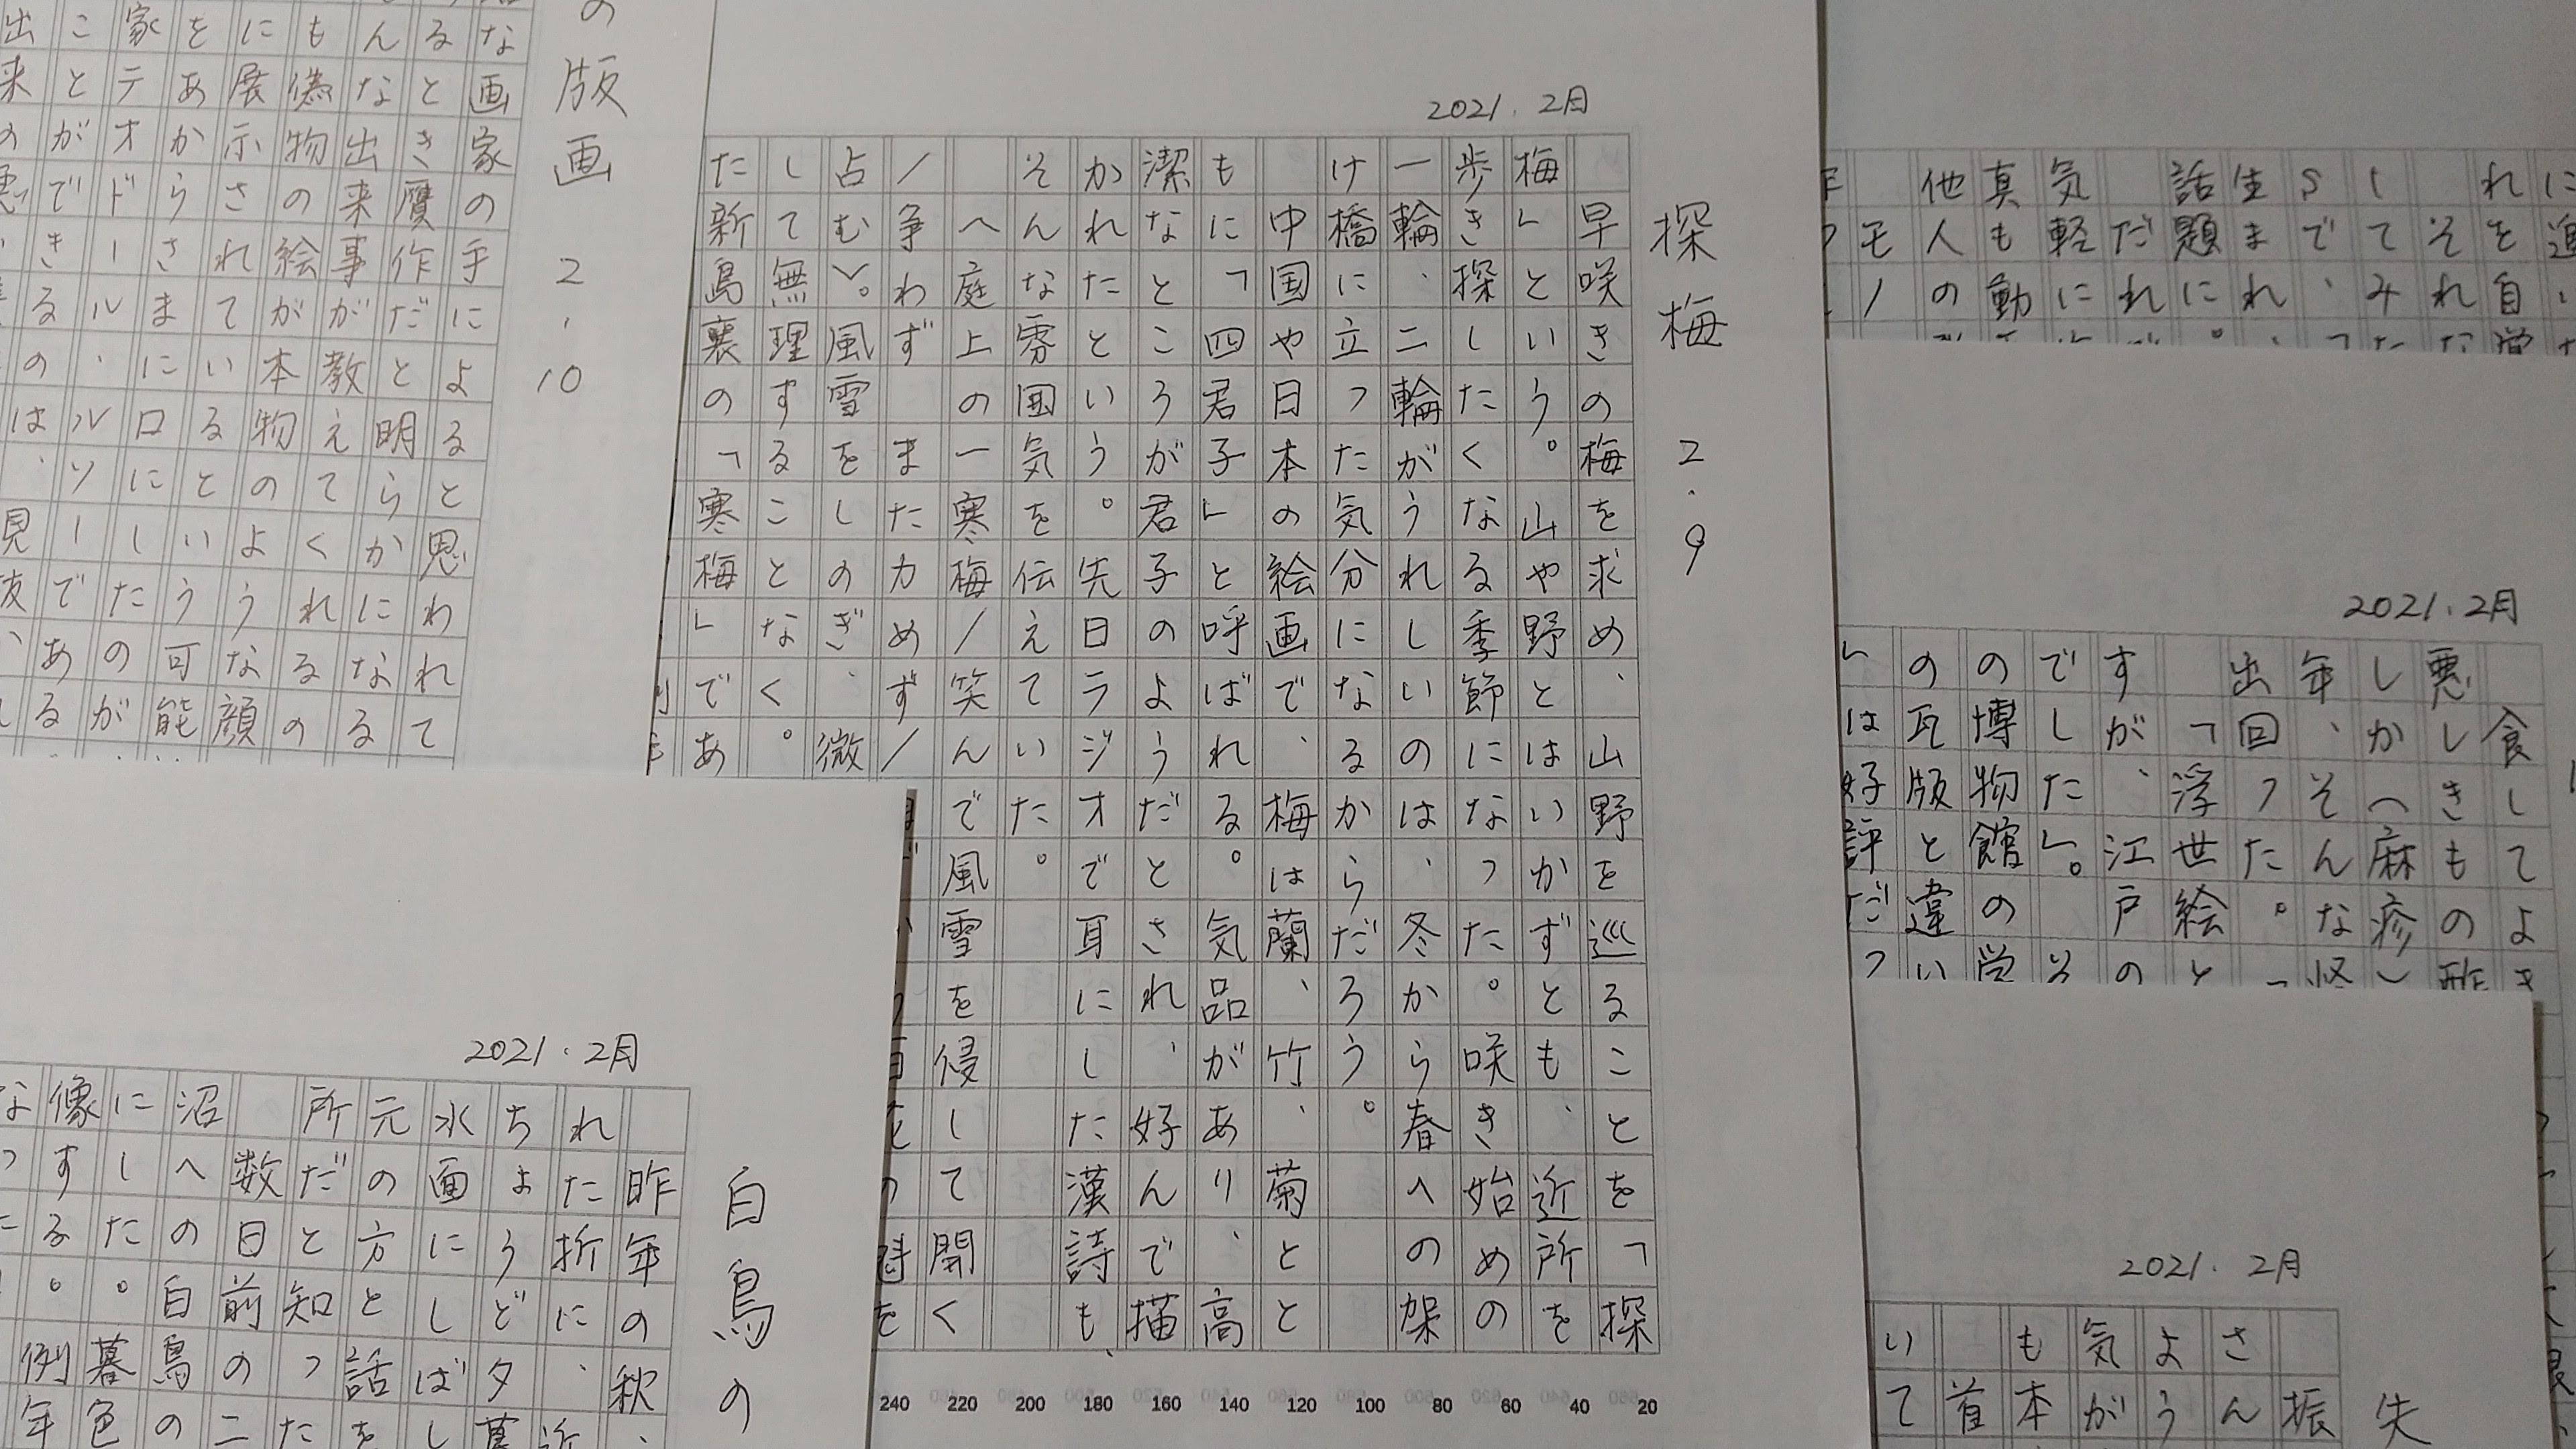 の版画 2.10
な画家の手によると思われて
るとき贋作だと明らかになる
んな出来事が教えてくれるの
も偽物の絵が本物のような顔
に展示されているという可能
をあからさまに口にしたのが
家テオドール、ルソーである
ことができるのは、
2021.2月
探梅 2.9
早咲きの梅を求め、山野を巡ることを「探
梅」という。山や野とはいかずとも、近所を
歩き探したくなる季節になった。咲き始めの
一輪、二輪がうれしいのは、冬から春への架
け橋に立った気分になるからだろう。
中国や日本の絵画で、梅は蘭、竹、菊とと
もに「四君子」と呼ばれる。気品があり、高
潔なところが君子のようだとされ、好んで描
かれたという。先日ラジオで耳にした漢詩も、
そんな雰囲気を伝えていた。
〈庭上の一寒梅/笑んで風雪を侵して開く
/争わずまた力めず/
占む〉。風雪をしのぎ、微
して無理することなく。
た新島襄の「寒梅」であ
れを自
それ
してみ
Sで、
生まれ
話題に。
だれ
気軽に
真も動
他人の
モノ
2021.2月
食してよき
悪しきもの酢
しか〈麻疹
年、そんな怪
出回った。
「浮世絵と
すが、江戸の
でした」。そ
の博物館の学
の瓦版と違い
」は好評だっ
2021.2月
白鳥の
昨年の秋、
れた折に、近
ちょうど夕暮
水面にしばし
元の方と話を
所だと知った
数日前の二
沼への白鳥の
にした。暮色
像する。例年
2021.2月
失
振
さん
よう
気が
も本
首
いて